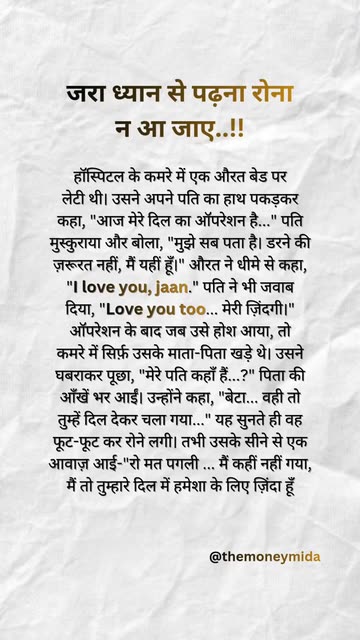 जरा ध्यान से पढ़ना रोना
न आ जाए..!!
हॉस्पिटल के कमरे में एक औरत बेड पर
लेटी थी। उसने अपने पति का हाथ पकड़कर
कहा, "आज मेरे दिल का ऑपरेशन है..." पति
मुस्कुराया और बोला, "मुझे सब पता है। डरने की
ज़रूरत नहीं, मैं यहीं हूँ।" औरत ने धीमे से कहा,
"I love you, jaan." पति ने भी जवाब
दिया, "Love you too... मेरी ज़िंदगी।"
ऑपरेशन के बाद जब उसे होश आया, तो
कमरे में सिर्फ़ उसके माता-पिता खड़े थे। उसने
घबराकर पूछा, "मेरे पति कहाँ हैं...?" पिता की
आँखें भर आईं। उन्होंने कहा, "बेटा... वही तो
तुम्हें दिल देकर चला गया..." यह सुनते ही वह
फूट-फूट कर रोने लगी। तभी उसके सीने से एक
आवाज़ आई-"रो मत पगली ... मैं कहीं नहीं गया,
मैं तो तुम्हारे दिल में हमेशा के लिए ज़िंदा हूँ
@themoneymida